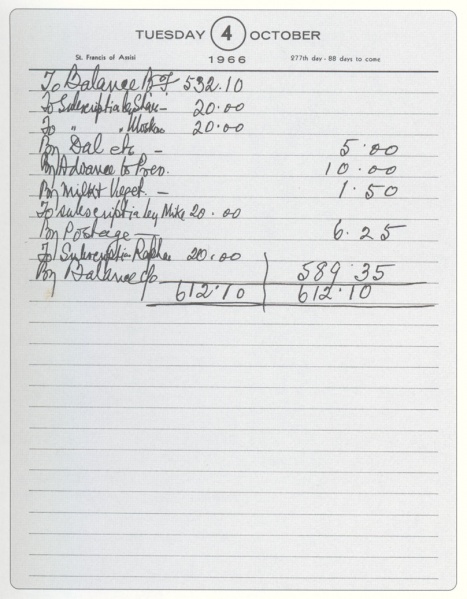 TUESDAY 4 OCTOBER
St. Francis of Assisi 1966 277th day - 88 days to come
To Balance B/F 532.10
To Subscription by Shai- 20.00
To " " 20.00
By Dal etc - 5.00
By Advance to Prev. 10.00
By Milk & Veget. - 1.50
To subscription by Mike 20.00
By Postage - 6.25
To Subscription Raphae 20.00
By Balance c/o 589.35
612.10 612.10